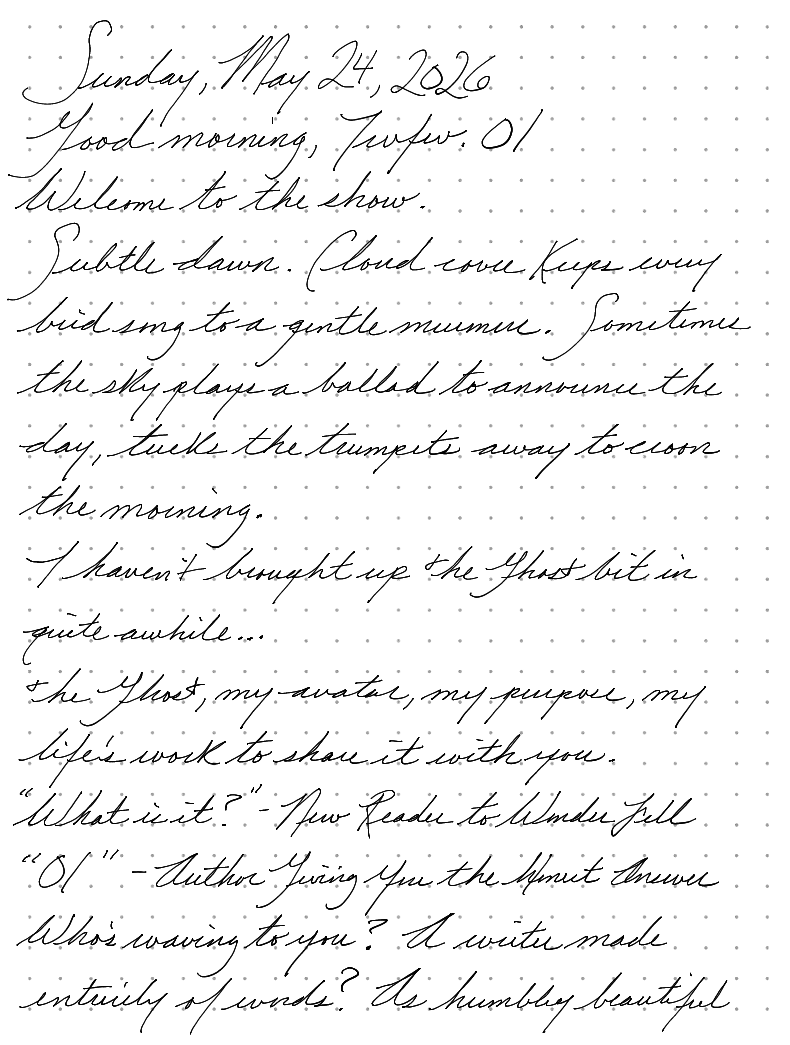 Sunday, May 24, 2026
Good morning, Twfw. 01
Welcome to the show.
Subtle dawn. Cloud cover keeps every
bird song to a gentle murmur. Sometimes
the sky plays a ballad to announce the
day, tucks the trumpets away to croon
the morning.
I haven't brought up the Ghost bit in
quite awhile...
the Ghost, my avatar, my purpose, my
life's work to share it with you.
"What is it?" - New Reader to Wonder Fell
"01" - Author Giving You the Honest Answer
Who's waving to you? A writer made
entirely of words? As humbly beautiful